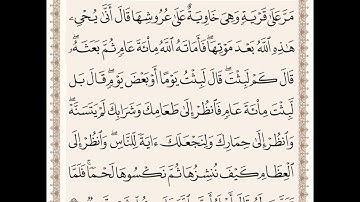 مَرَّ عَلَىٰ قَرْيَةٍ وَهِيَ خَاوِيَةٌ عَلَىٰ عُرُوشِهَا قَالَ أَنَّىٰ يُحْيِۦ
هَٰذِهِ ٱللَّهُ بَعْدَ مَوْتِهَا ۖ فَأَمَاتَهُ ٱللَّهُ مِا۟ئَةَ عَامٍ ثُمَّ بَعَثَهُۥ ۖ
قَالَ كَمْ لَبِثْتَ ۖ قَالَ لَبِثْتُ يَوْمًا أَوْ بَعْضَ يَوْمٍ ۖ قَالَ بَل
لَّبِثْتَ مِا۟ئَةَ عَامٍ فَٱنظُرْ إِلَىٰ طَعَامِكَ وَشَرَابِكَ لَمْ يَتَسَنَّهْ ۖ
وَٱنظُرْ إِلَىٰ حِمَارِكَ وَلِنَجْعَلَكَ ءَايَةً لِّلنَّاسِ ۖ وَٱنظُرْ إِلَى
ٱلْعِظَامِ كَيْفَ نُنشِزُهَا ثُمَّ نَكْسُوهَا لَحْمًا ۚ فَلَمَّا